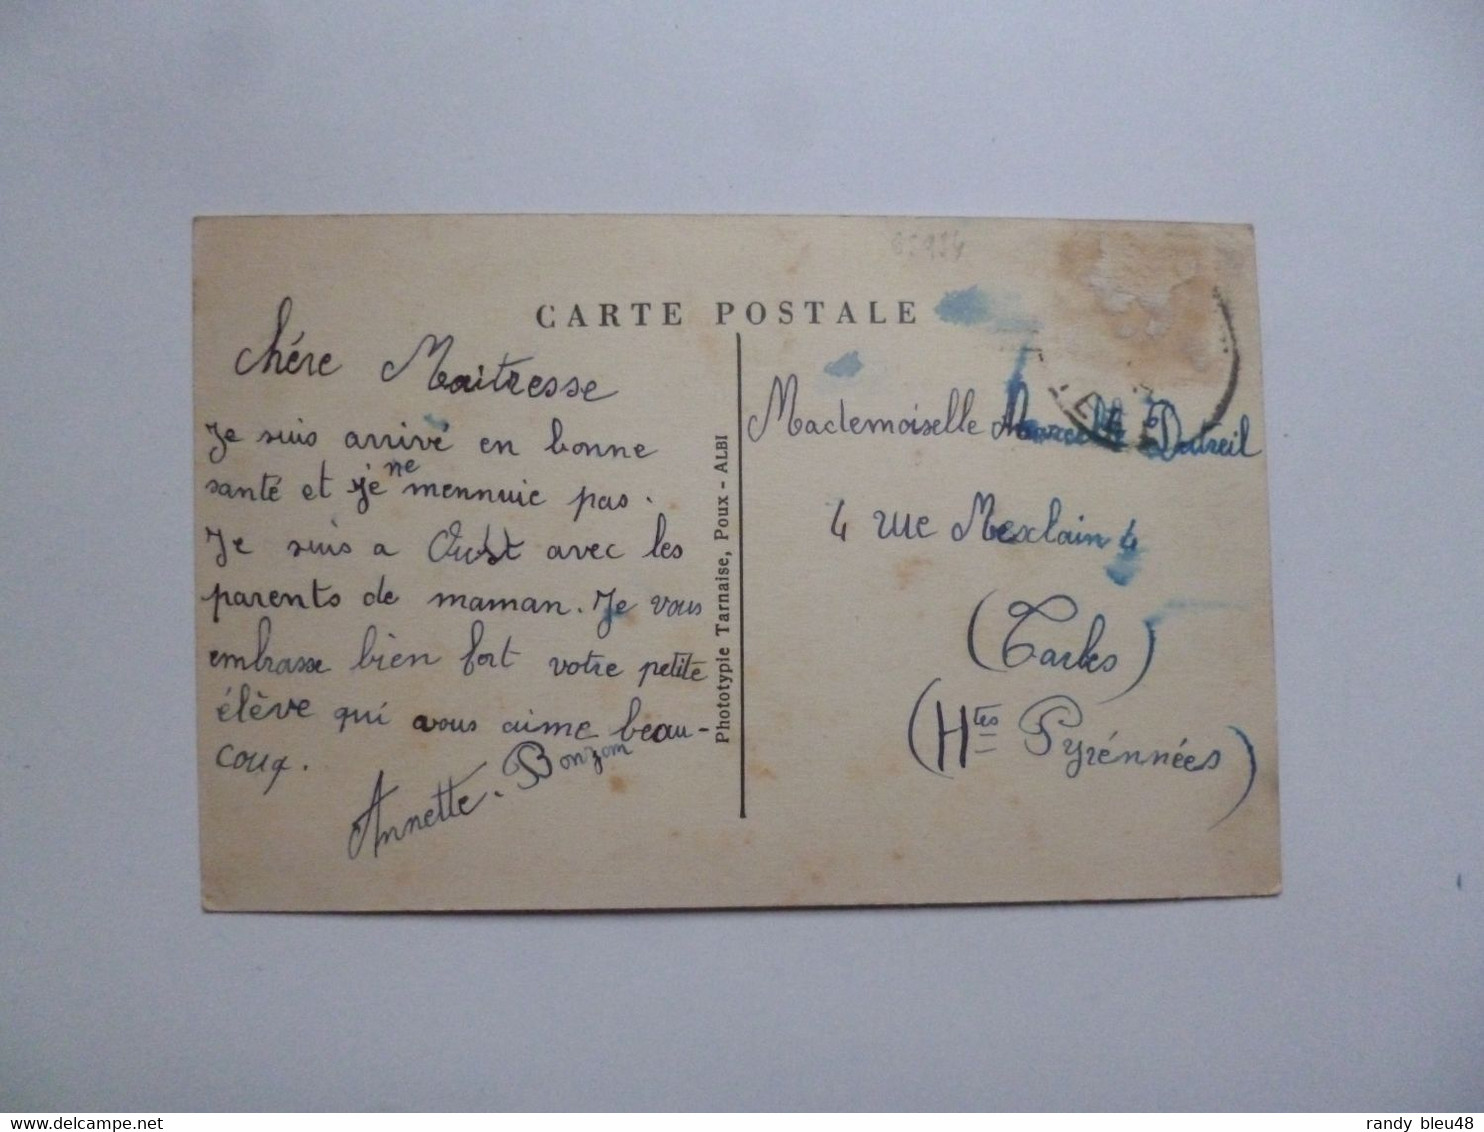 CARTE POSTALE
Chére Maitresse
Je suis arrivé en bonne
santé et je ne mennuie pas.
Je suis a Oust avec les
parents de maman. Je vous
embrasse bien fort votre petite
élève qui vous aime beau-
coup.
Annette. Bonzom
Phototypie Tarnaise, Poux - ALBI
Mademoiselle Marcelle Dutreil
4 rue Mesclain 4
(Tarbes)
(Htes Pyrénnées)
randy bleu48